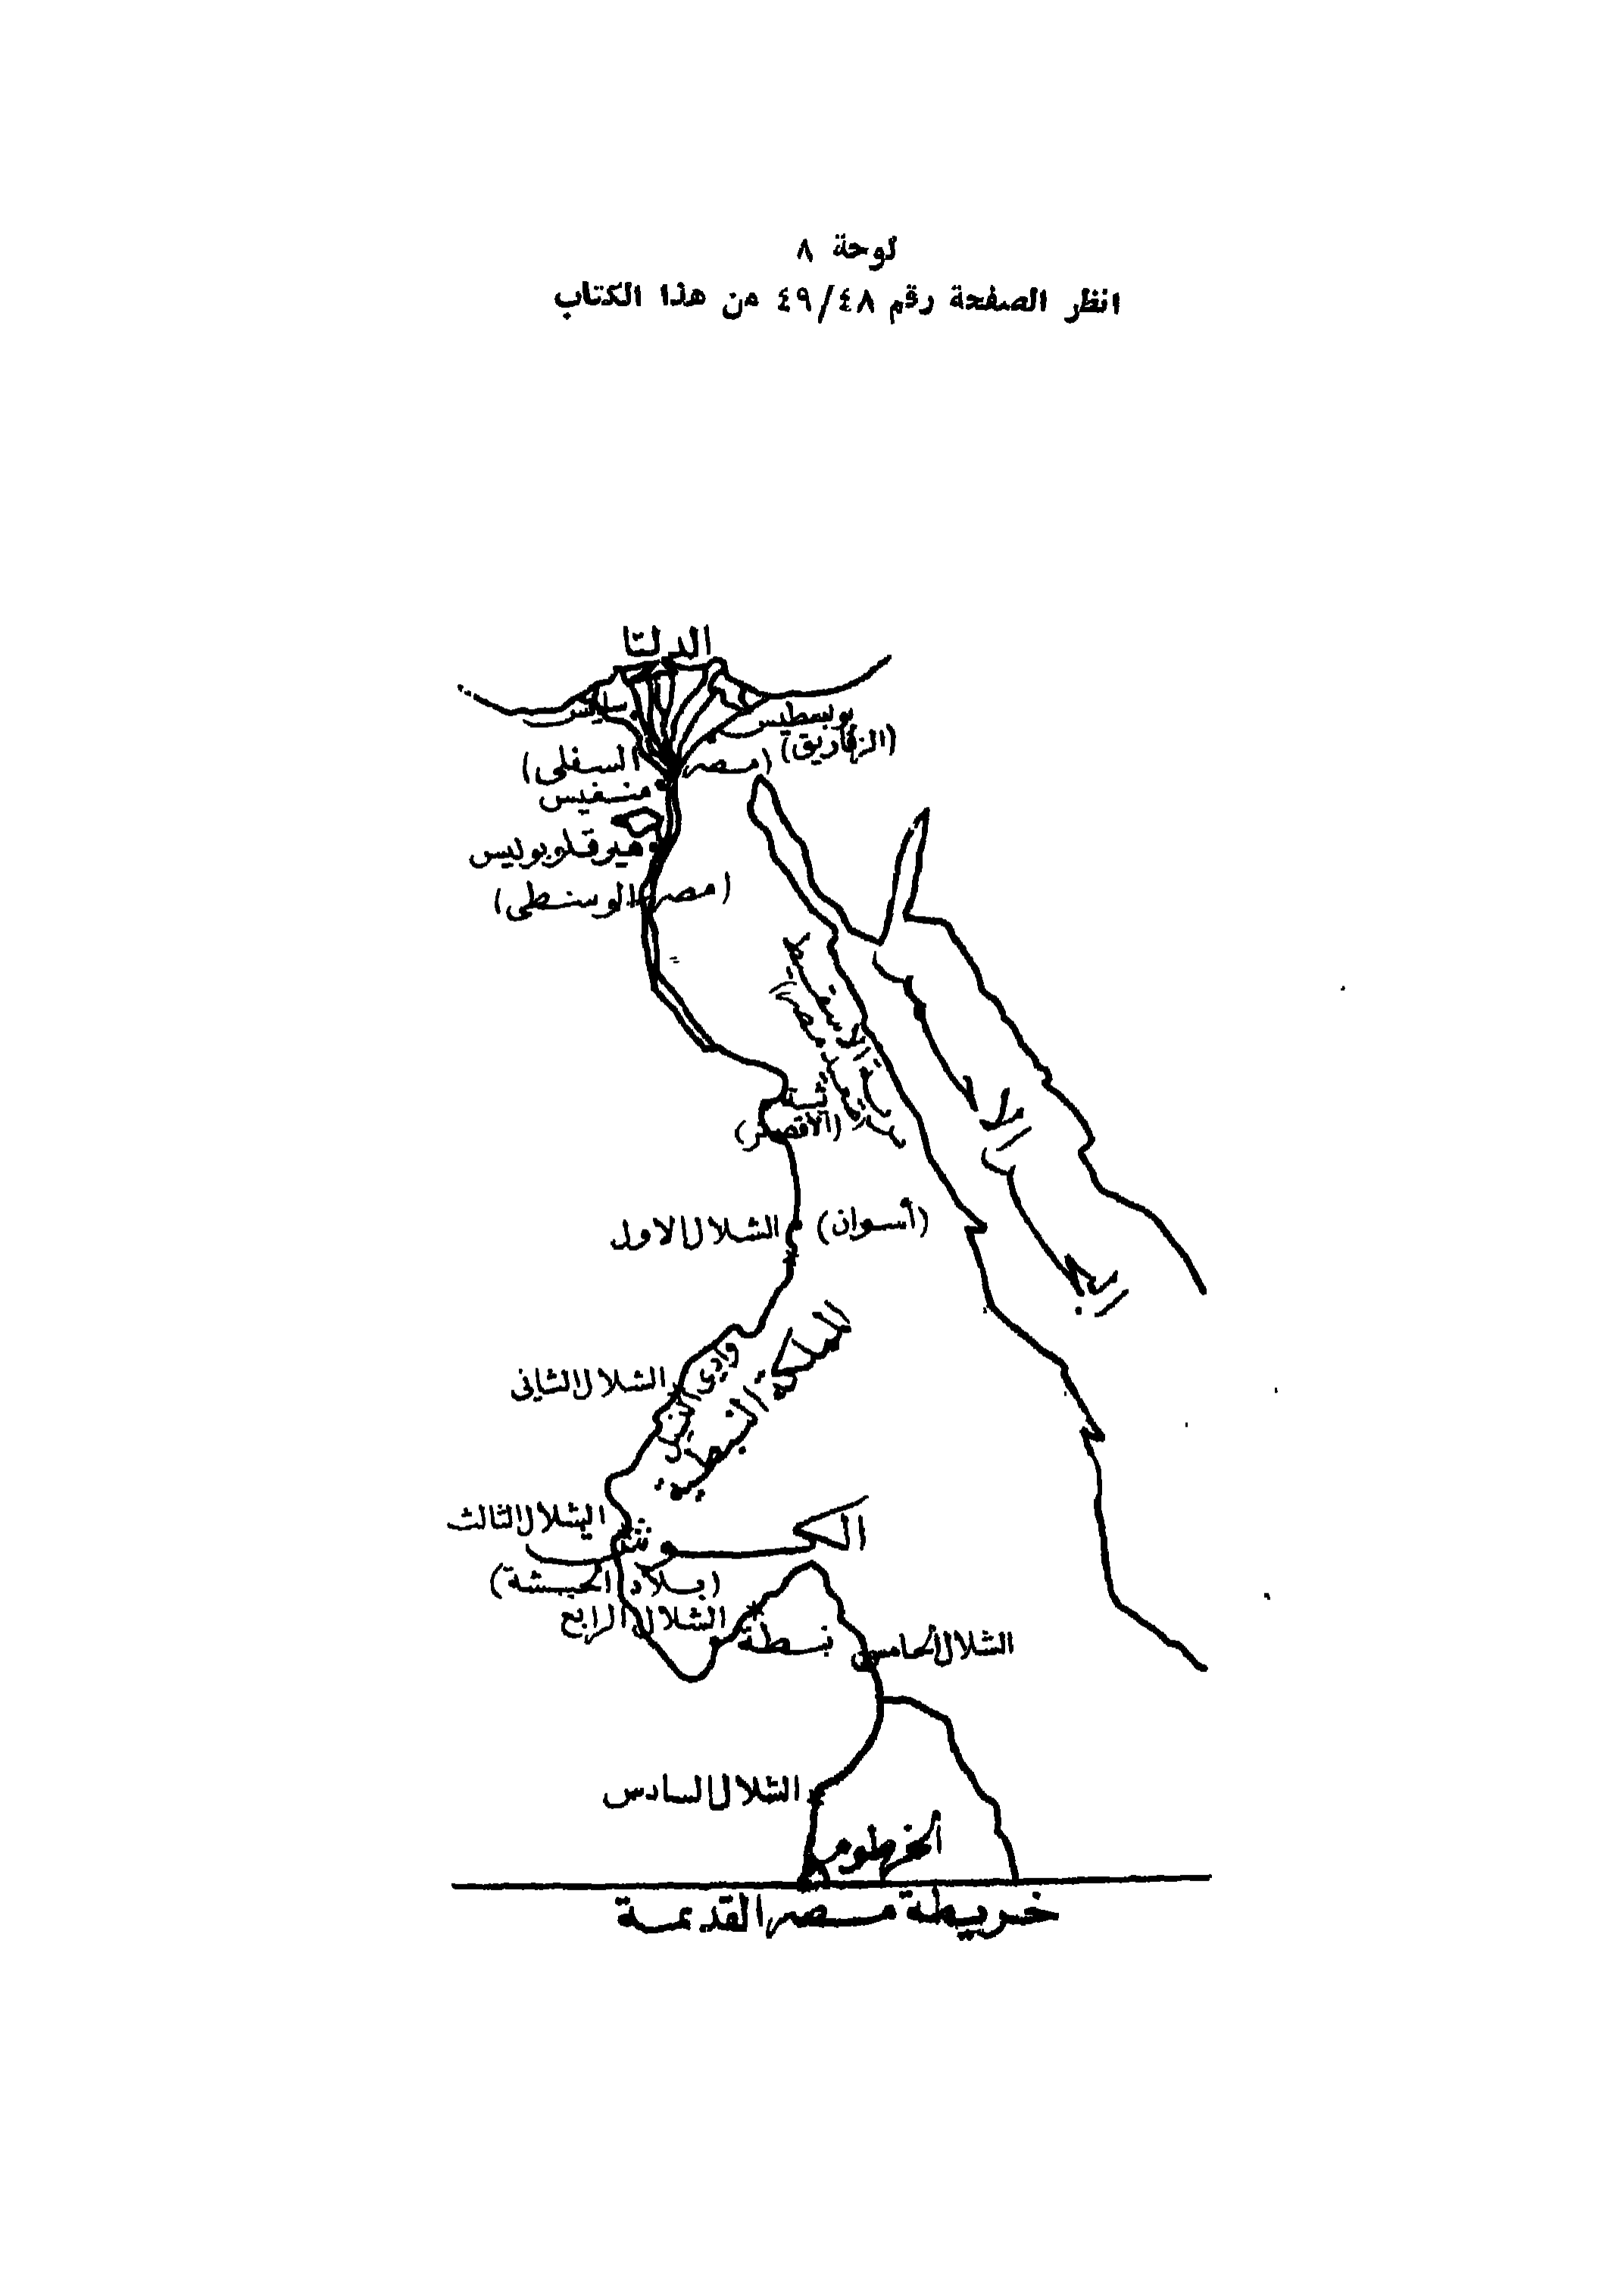 لوحة ٨
انظر الصفحة رقم ٤٨/٤٩ من هذا الكتاب
الدلتا
سايس
بوبسطيس
(الزقازيق)
(مصر السفلى)
منفيس
هيرقلوبوليس
(مصر الوسطى)
(الأقصر)
الشلال الاول
(أسوان)
البحر الأحمر
المملكة النبطية
وادي
الشلال الثانى
الشلال الثالث
الكوش
(بلاد الحبشة)
الشلال الرابع
نبطة
الشلال الخامس
الشلال السادس
الخرطوم
خريطة مصر القديمة